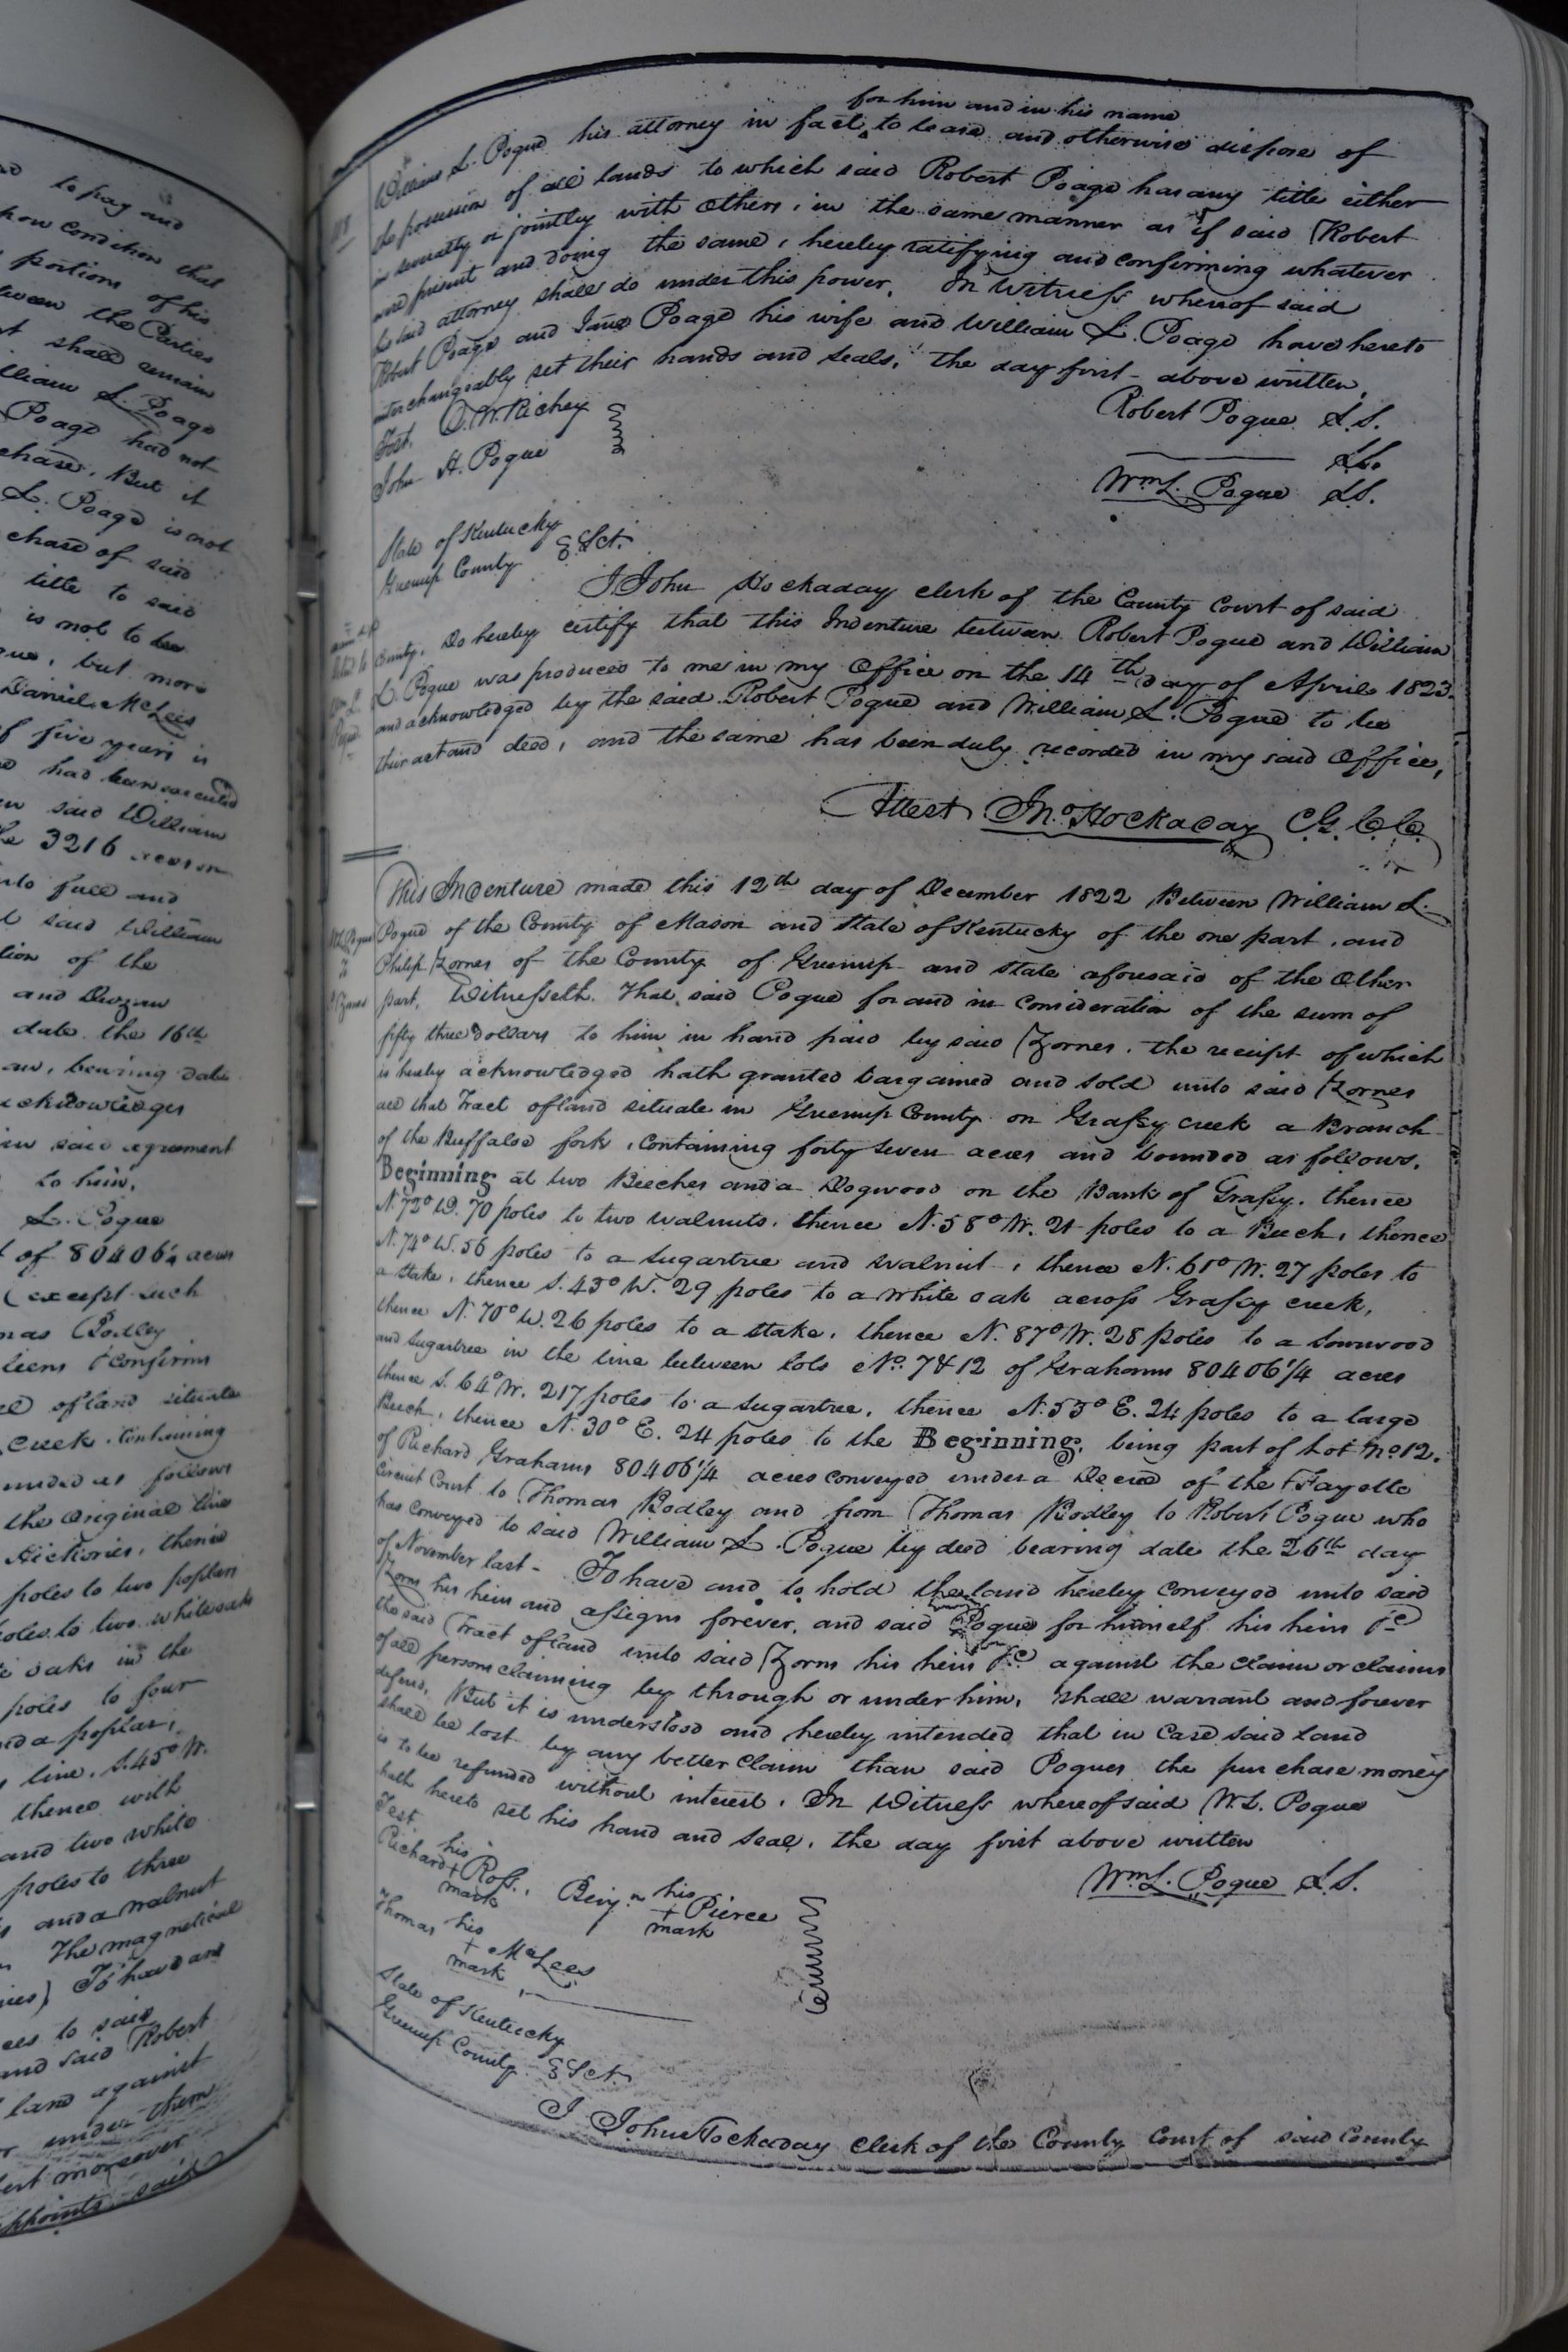 to pay and
condition that
portions of his
the Parties
shall remain
William L. Poage
Poage had not
chase. But it
L. Poage is not
chase of said
title to said
is not to be
but more
Daniel McLees
of five years is
had been executed
said William
3216 acres
full and
said William
tion of the
and
date the 16th
bearing date
acknowledges
in said agreement
to him.
L. Pogue
of 80406¼ acres
(except such
Bodley
confirm
of land situate
Creek containing
as follows
the original line
Hickories, thence
poles to two poplars
poles to two whiteoaks
oaks in the
poles to four
and a poplar,
line, S. 45° W.
thence with
and two white
poles to three
and a walnut
The magnetical
To have and
to said
and said Robert
land against
under them
moreover
appoints said
for him and in his name
William L. Pogue his attorney in fact ‸ to lease and otherwise dispose of
the possession of all lands to which said Robert Poage has any title either
in severalty or jointly with others, in the same manner as if said Robert
were present and doing the same, hereby ratifying and confirming whatever
his said attorney shall do under this power. In Witness whereof said
Robert Poage and Jane Poage his wife and William L. Poage have hereto
interchangeably set their hands and seals, the day first above written.
Test. O. W. Richey
John H. Pogue
Robert Pogue L.S.
L.S.
Wm L. Pogue L.S.
State of Kentucky
Greenup County Sct.
I John Hockaday clerk of the County Court of said
County, do hereby certify that this Indenture between Robert Pogue and William
L. Pogue was produced to me in my Office on the 14th day of April 1823.
and acknowledged by the said Robert Pogue and William L. Pogue to be
their act and deed, and the same has been duly recorded in my said Office,
Attest Jno Hockaday C.G.C.C.
This Indenture made this 12th day of December 1822 Between William L.
Pogue of the County of Mason and State of Kentucky of the one part, and
Philip Zornes of the County of Greenup and State aforesaid of the other
part, Witnesseth. That said Pogue for and in consideration of the sum of
fifty three dollars to him in hand paid by said Zornes, the receipt of which
is hereby acknowledged hath granted bargained and sold unto said Zornes
all that Tract of land situate in Greenup County on Grassy creek a Branch
of the Buffaloe fork, containing forty seven acres and bounded as follows.
Beginning at two Beeches and a Dogwood on the Bank of Grassy. thence
N. 72° W. 70 poles to two walnuts, thence N. 58° W. 21 poles to a Beech, thence
N. 74° W. 56 poles to a sugartree and walnut, thence N. 61° W. 27 poles to
a stake, thence S. 43° W. 29 poles to a white oak across Grassy creek,
thence N. 70° W. 26 poles to a stake, thence N. 87° W. 28 poles to a sourwood
and sugartree in the line between lots No. 7 & 12 of Grahams 80406¼ acres
thence S. 64° W. 217 poles to a sugartree, thence N. 53° E. 24 poles to a large
Beech, thence N. 30° E. 24 poles to the Beginning, being part of Lot No 12.
of Richard Grahams 80406¼ acres conveyed under a Decree of the Fayette
Circuit Court to Thomas Bodley and from Thomas Bodley to Robert Pogue who
has conveyed to said William L. Pogue by deed bearing date the 26th day
of November last - To have and to hold the land hereby conveyed unto said
Zorns his heirs and assigns forever, and said Pogue for himself his heirs &c
the said Tract of land unto said Zorns his heirs &c against the claim or claims
of all persons claiming by through or under him, shall warrant and forever
defend. But it is understood and hereby intended that in case said Land
shall be lost by any better Claim than said Pogues the purchase money
is to be refunded without interest. In Witness whereof said W. L. Pogue
hath hereto set his hand and seal, the day first above written
Wm L. Pogue L.S.
Test.
his
Richard + Ross.
mark
his
Benj.n + Pierce
mark
his
Thomas + McLees
mark
State of Kentucky
Greenup County Sct.
I John Hockaday Clerk of the County Court of said County